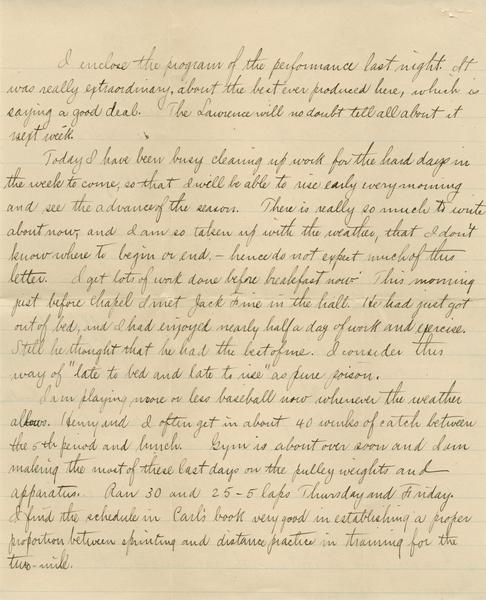 I enclose the program of the performance last night. It
was really extraordinary, about the best ever produced here, which is
saying a good deal. The Lawrence will no doubt tell all about it
next week.
Today I have been busy clearing up work for the hard days in
the week to come, so that I will be able to rise early every morning
and see the advance of the season. There is really so much to write
about now, and I am so taken up with the weather, that I don't
know where to begin or end, - hence do not expect much of this
letter. I get lots of work done before breakfast now. This morning
just before Chapel I met Jack Fine in the hall. He had just got
out of bed, and I had enjoyed nearly half a day of work and exercise.
Still he thought that he had the best of me. I consider this
way of "late to bed and late to rise" as pure poison.
I am playing more or less baseball now whenever the weather
allows. Henry and I often get in about 40 winks of catch between
the 5th period and lunch. Gym is about over soon and I am
making the most of these last days on the pulley weights and
apparatus. Ran 30 and 25-5 laps Thursday and Friday.
I find the schedule in Carl's book very good in establishing a proper
proportion between sprinting and distance practice in training for the
two-mile.